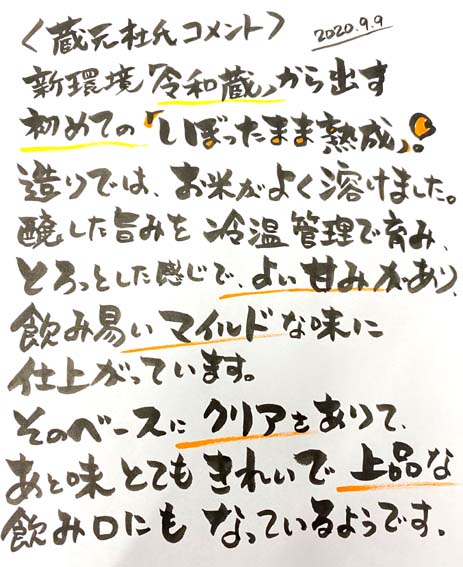 〈蔵元杜氏コメント〉 2020.9.9
新環境「令和蔵」から出す
初めての「しぼったまま熟成」!
造りでは、お米がよく溶けました。
醸した旨みを冷温管理で育み、
とろっとした感じで、よい甘みがあり、
飲み易いマイルドな味に
仕上がっています。
そのベースにクリアさありて、
あと味とてもきれいで上品な
飲み口にもなっているようです。